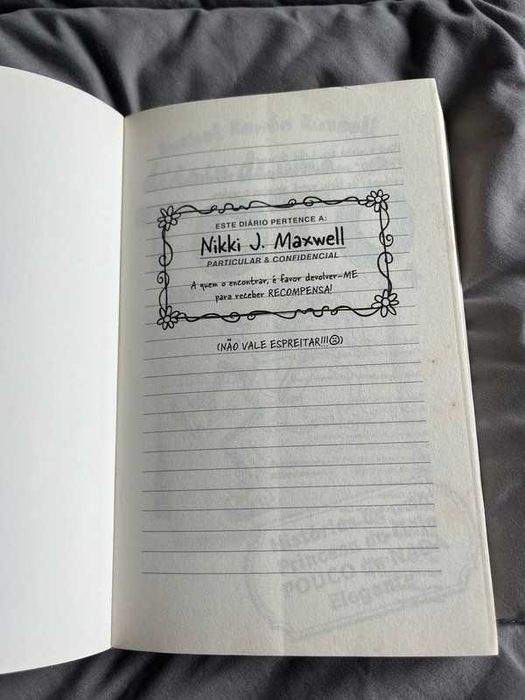 ESTE DIÁRIO PERTENCE A:
Nikki J. Maxwell
PARTICULAR & CONFIDENCIAL
A quem o encontrar, é favor devolver-ME
para receber RECOMPENSA!
(NÃO VALE ESPREITAR!!!☹)